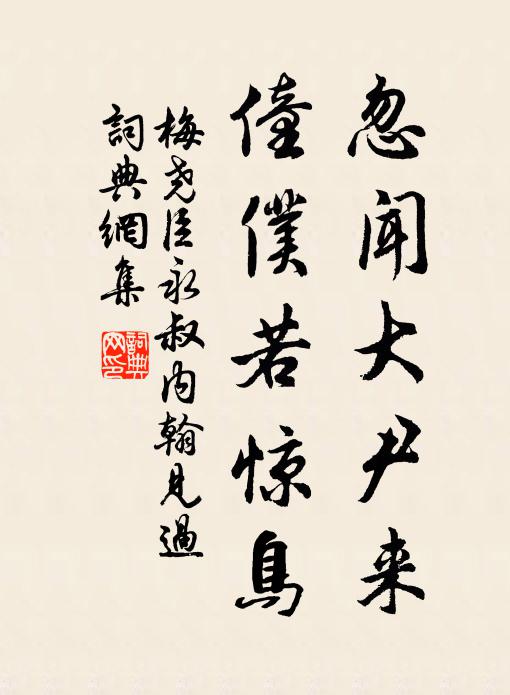 忽闻大尹来
僮仆若惊鳥
梅尧臣永叔内翰見過
詞典網集
詞典网印